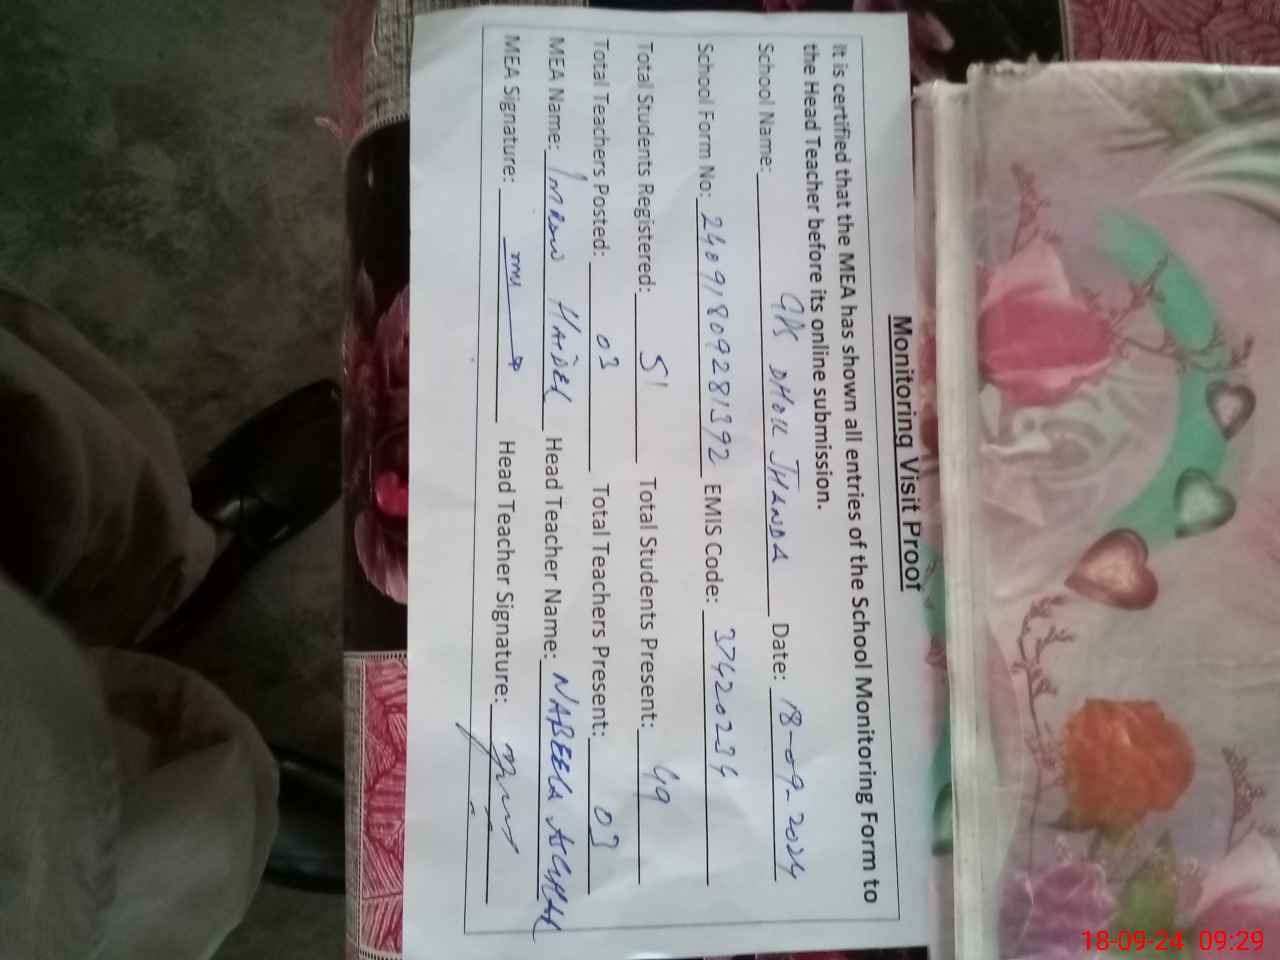 Monitoring Visit Proof
It is certified that the MEA has shown all entries of the School Monitoring Form to
the Head Teacher before its online submission.
School Name: DHOK JHANDA Date: 18-09-2024
School Form No: 24091809281392 EMIS Code: 37420234
Total Students Registered: 51 Total Students Present: 49
Total Teachers Posted: 03 Total Teachers Present: 03
MEA Name: IMRAN HAIDER Head Teacher Name: NABEELA
MEA Signature: Head Teacher Signature:
18-09-24 09:29